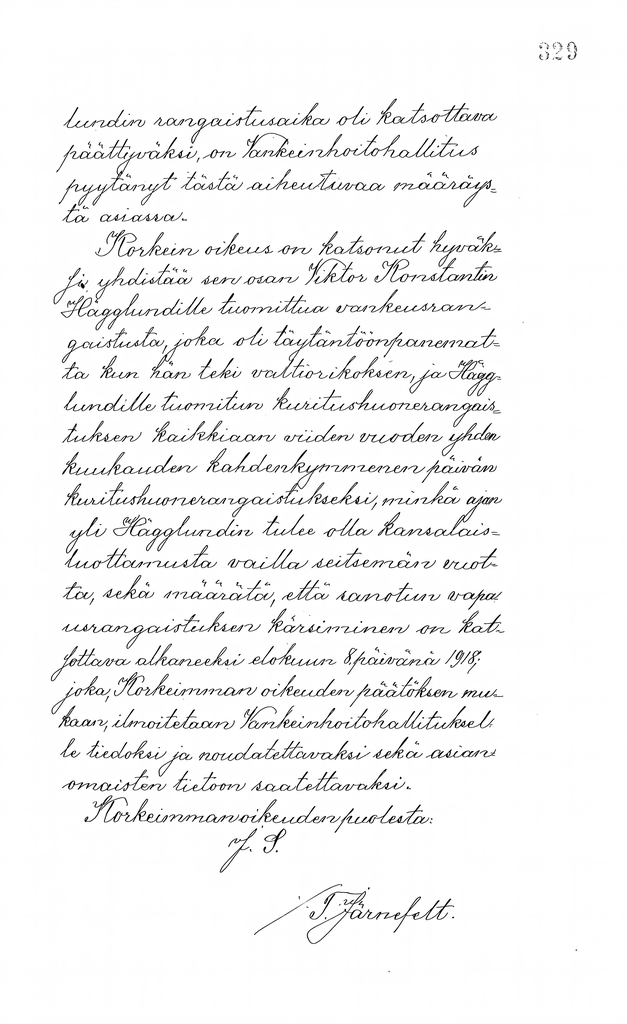 329
lundin rangaistusaika oli katsottava
päättyväksi, on Vankeinhoitohallitus
pyytänyt tästä aiheutuvaa määräys-
tä asiassa.
Korkein oikeus on katsonut hyväk-
si yhdistää sen osan Viktor Konstantin
Hägglundille tuomittua vankeusran-
gaistusta, joka oli täytäntöönpanemat-
ta kun hän teki valtiorikoksen, ja Hägg-
lundille tuomitun kuritushuonerangais-
tuksen kaikkiaan viiden vuoden yhden
kuukauden kahdenkymmenen päivän
kuritushuonerangaistukseksi, minkä ajan
yli Hägglundin tulee olla kansalais-
luottamusta vailla seitsemän vuot-
ta, sekä määrätä, että sanotun vapa-
usrangaistuksen kärsiminen on kat-
sottava alkaneeksi elokuun 8 päivänä 1918;
joka, Korkeimman oikeuden päätöksen mu-
kaan, ilmoitetaan Vankeinhoitohallituksel-
le tiedoksi ja noudatettavaksi sekä asian-
omaisten tietoon saatettavaksi.
Korkeimman oikeuden puolesta:
J. Järnefelt.